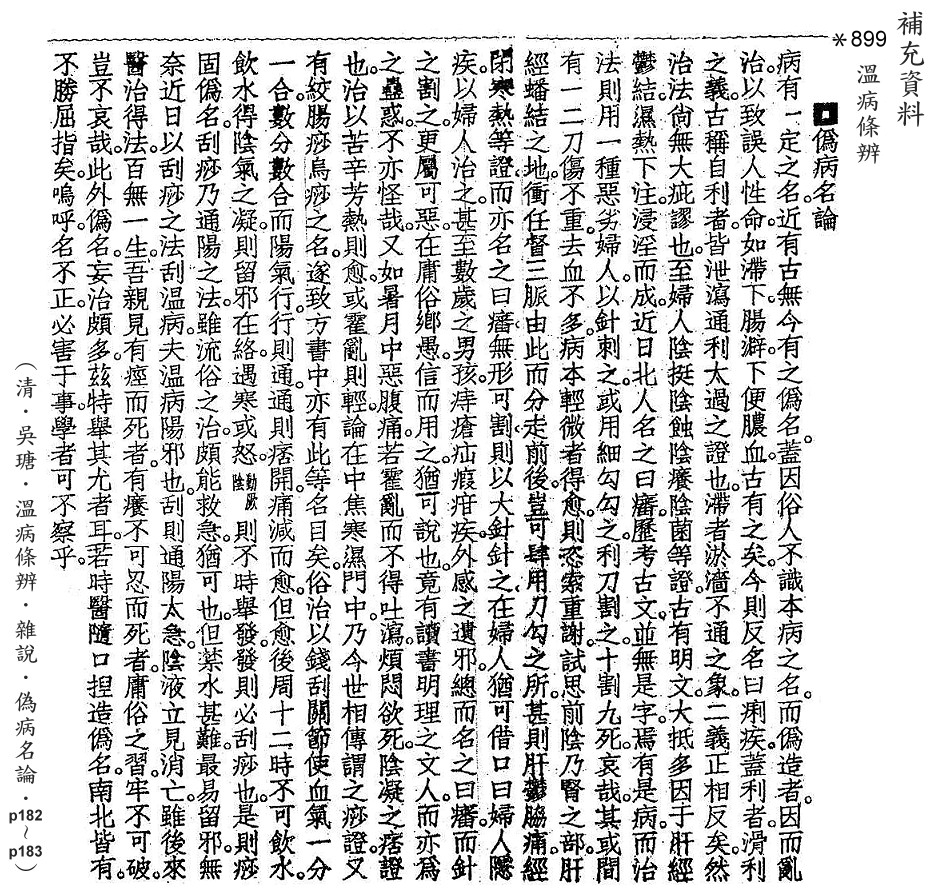 補充資料
＊899
溫病條辨
■偽病名論
病有一定之名。近有古無今有之偽名。蓋因俗人不識本病之名。而偽造者。因而亂
治。以致誤人性命。如滯下。腸澼。下便膿血。古有之矣。今則反名曰痢疾。蓋利者滑利
之義。古稱自利者。皆泄瀉通利太過之證也。滯者。淤濇不通之象。二義正相反矣。然
治法尚無大疵謬也。至婦人陰挺。陰蝕。陰癢。陰菌等證。古有明文。大抵多因于肝經
鬱結。濕熱下注。浸淫而成。近日北人名之曰𤺺。歷考古文。並無是字。焉有是病。而治
法則用一種惡劣婦人。以針刺之。或用細勾勾之。利刀割之。十割九死。哀哉。其或間
有一二刀傷不重。去血不多。病本輕微者得愈。則恣索重謝。試思前陰乃腎之部。肝
經蟠結之地。衝任督三脈由此而分走前後。豈可肆用刀勾之所。甚則肝鬱脇痛。經
閉寒熱等證。而亦名之曰𤺺。無形可割。則以大針針之。在婦人猶可借口曰婦人隱
疾。以婦人治之。甚至數歲之男孩。痔瘡疝瘕疳疾。外感之遺邪。總而名之曰𤺺。而針
之割之。更屬可惡。在庸俗鄉愚。信而用之。猶可說也。竟有讀書明理之文人而亦為
之蠱惑。不亦怪哉。又如暑月中惡腹痛。若霍亂而不得吐瀉。煩悶欲死。陰凝之痞證
也。治以苦辛芳熱則愈。或霍亂則輕。論在中焦寒濕門中。乃今世相傳謂之痧證。又
有絞腸痧烏痧之名。遂致方書中亦有此等名目矣。俗治以錢刮關節。使血氣一分
一合。數分數合而陽氣行。行則通。通則痞開痛減而愈。但愈後周十二時不可飲水。
飲水得陰氣之凝。則留邪在絡。遇寒或怒動厥陰則不時舉發。發則必刮痧也。是則痧
固偽名。刮痧乃通陽之法。雖流俗之治。頗能救急。猶可也。但禁水甚難。最易留邪。無
奈近日以刮痧之法刮溫病。夫溫病。陽邪也。刮則通陽太急。陰液立見消亡。雖後來
醫治得法。百無一生。吾親見有痙而死者。有癢不可忍而死者。庸俗之習。牢不可破。
豈不哀哉。此外偽名妄治頗多。茲特舉其尤者耳。若時醫隨口捏造偽名。南北皆有。
不勝屈指矣。嗚呼。名不正。必害于事。學者可不察乎。
（清．吳瑭．溫病條辨．雜說．偽病名論．p182～p183）